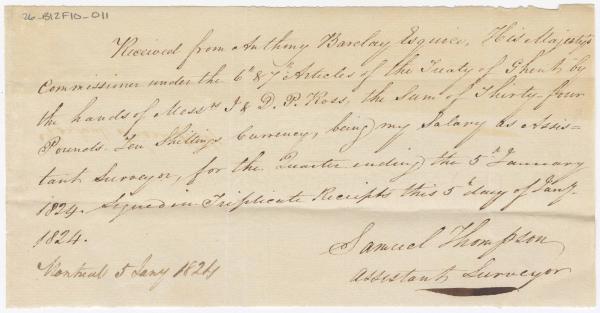 26-B12F10-011
Received from Anthony Barclay Esquire, His Majesty's
Commissioner under the 6th & 7th Articles of the Treaty of Ghent by
the hands of Messrs J & D. P. Ross, the Sum of Thirty four
Pounds Ten Shillings Currency, being my Salary as Assis=
tant Surveyor, for the Quarter ending the 5th January
1824. Signed in Triplicate Receipts this 5th day of Jany.
1824.
Samuel Thompson
Assistant Surveyor
Montreal 5 Jany 1824